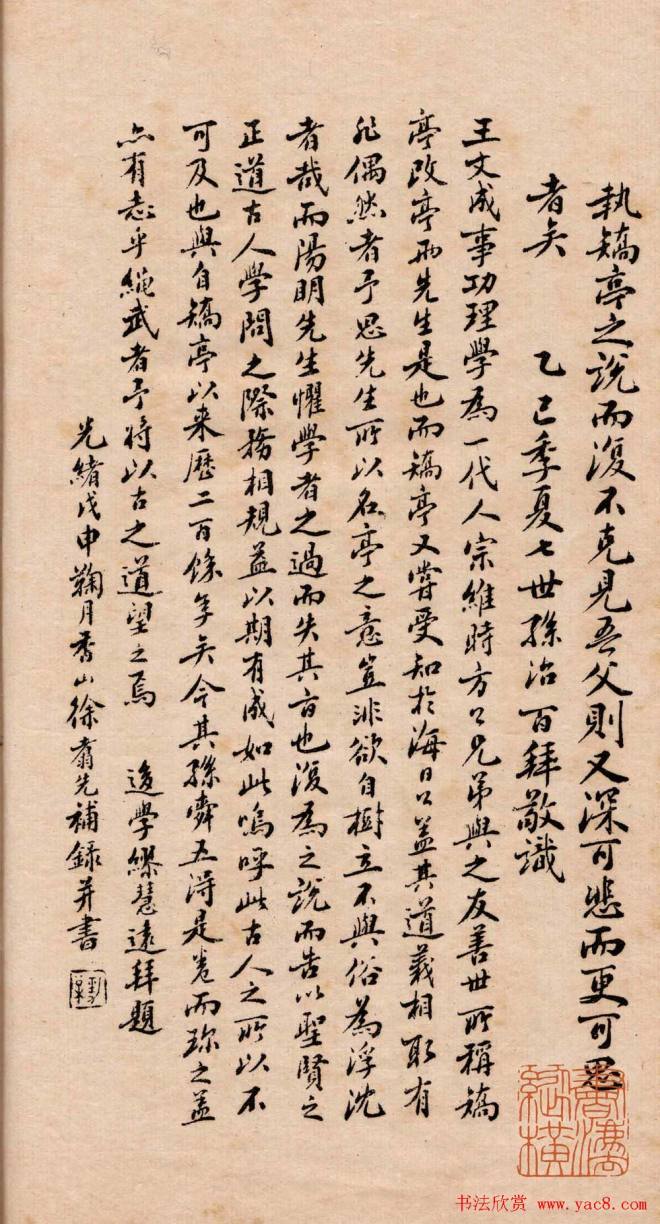 執矯亭之說而復不克見吾父則又深可悲而更可思
者矣　乙巳季夏七世孫治百拜敬識
王文成事功理學為一代人宗維時方公兄弟與之友善世所稱矯
亭改亭兩先生是也而矯亭又嘗受知於海日公蓋其道義相取有
非偶然者予思先生所以名亭之意豈非欲自樹立不與俗為浮沈
者哉而陽明先生懼學者之過而失其旨也復為之說而告以聖賢之
正道古人學問之際務相規益以期有成如此嗚呼此古人之所以不
可及也與自矯亭以来歷二百餘年矣今其孫舜五得是卷而珎之盖
亦有志乎繩武者予將以古之道望之焉　後學繆慧遠拜題
光緒戊申鞠月香山徐翥先補錄并書
縱橫
书法欣赏 www.yac8.com